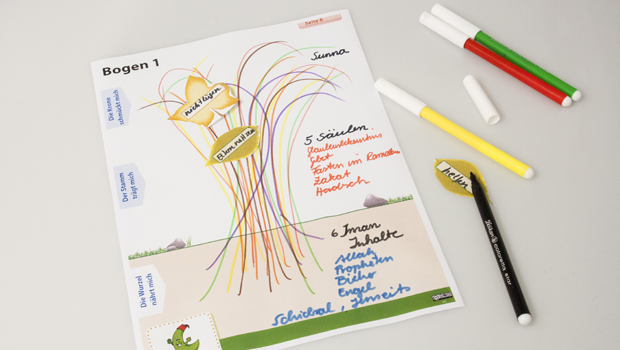 Seite 6
Bogen 1
Sunna
Die Krone
schmückt mich
nicht lügen
Eltern helfen
5 Säulen
Glaubensbekenntnis
Gbet
Fasten im Ramadan
Zakat
Hadsch
Der Stamm
trägt mich
helfen
6 Iman
Inhalte
Allah
Propheten
Bücher
Engel
Schicksal, Jenseits
Die Wurzel
nährt mich